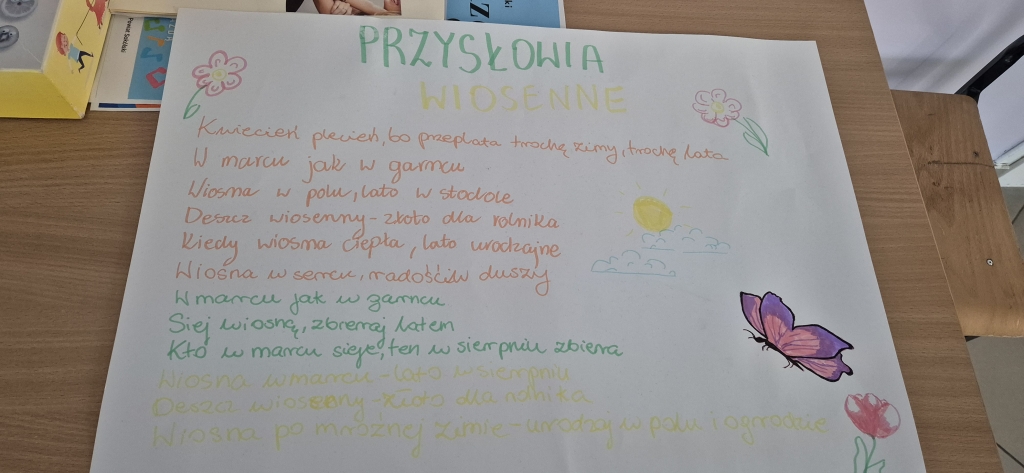 PRZYSŁOWIA
WIOSENNE
Kwiecień plecień, bo przeplata trochę zimy, trochę lata
W marcu jak w garncu
Wiosna w polu, lato w stodole
Deszcz wiosenny - złoto dla rolnika
Kiedy wiosna ciepła, lato urodzajne
Wiosna w sercu, radość w duszy
W marcu jak w garncu
Siej wiosną, zbieraj latem
Kto w marcu sieje, ten w sierpniu zbiera
Wiosna w marcu - lato w sierpniu
Deszcz wiosenny - złoto dla rolnika
Wiosna po mroźnej zimie - urodzaj w polu i ogrodzie